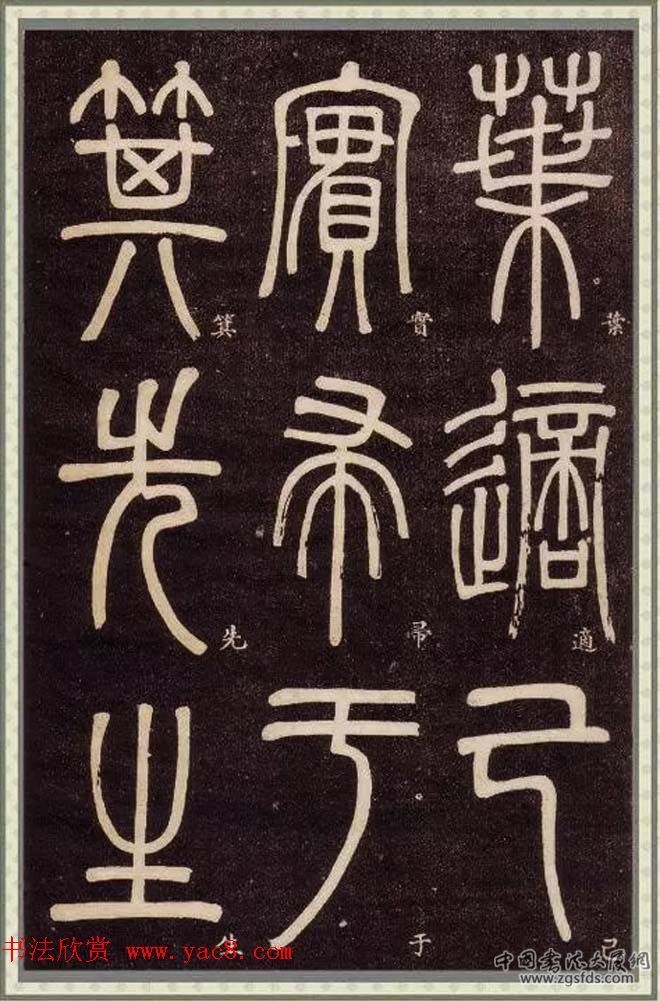 葉適己
葉適己
實帚于
實帚于
箕先生
箕先生
书法欣赏 www.yac8.com
中國書法大展網
www.zgsfds.com